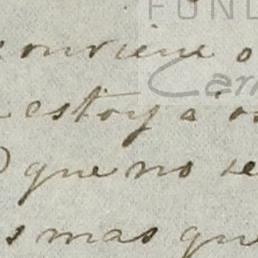 FUND
conviene o
Car
estoy a os
que no se
s mas que